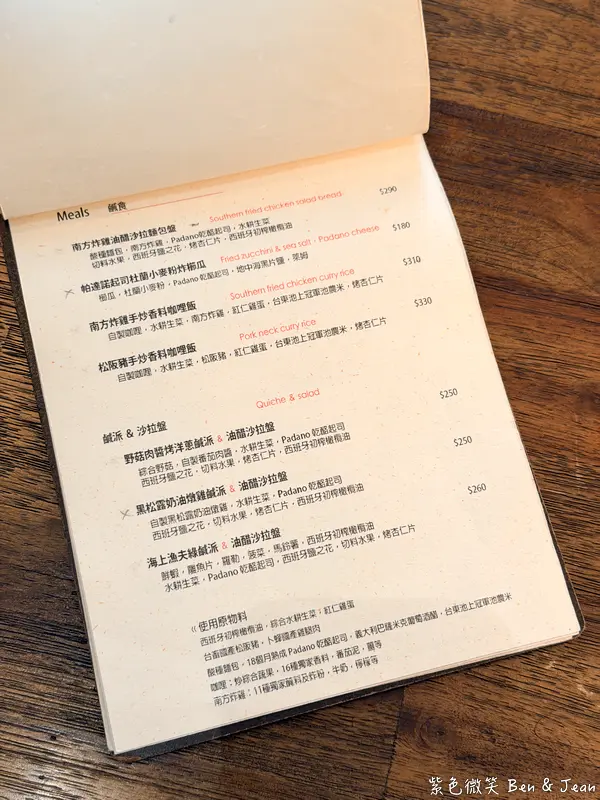 Meals 鹹食
南方炸雞油醋沙拉麵包盤 Southern fried chicken salad bread $290
酸種麵包，南方炸雞，Padano乾酪起司，水耕生菜
切料水果，西班牙鹽之花，烤杏仁片，西班牙初榨橄欖油
帕達諾起司杜蘭小麥粉炸櫛瓜 Fried zucchini & sea salt・Padano cheese $180
櫛瓜，杜蘭小麥粉，Padano乾酪起司，地中海黑片鹽，萊姆
南方炸雞手炒香料咖哩飯 Southern fried chicken curry rice $310
自製咖哩，水耕生菜，南方炸雞，紅仁雞蛋，台東池上冠軍池農米，烤杏仁片
松阪豬手炒香料咖哩飯 Pork neck curry rice $330
自製咖哩，水耕生菜，松阪豬，紅仁雞蛋，台東池上冠軍池農米，烤杏仁片
鹹派 & 沙拉盤 Quiche & salad
野菇肉醬烤洋蔥鹹派 & 油醋沙拉盤 $250
綜合野菇，自製番茄肉醬，水耕生菜，Padano 乾酪起司
西班牙鹽之花，切料水果，烤杏仁片，西班牙初榨橄欖油
黑松露奶油燉雞鹹派 & 油醋沙拉盤 $250
自製黑松露奶油燉雞，水耕生菜，Padano 乾酪起司
西班牙鹽之花，切料水果，烤杏仁片，西班牙初榨橄欖油
海上漁夫綠鹹派 & 油醋沙拉盤 $260
鮮蝦，鯛魚片，羅勒，菠菜，馬鈴薯，西班牙初榨橄欖油
水耕生菜，Padano 乾酪起司，西班牙鹽之花，切料水果，烤杏仁片
《 使用原物料
西班牙初榨橄欖油，綜合水耕生菜；紅仁雞蛋
台畜國產松阪豬，卜蜂國產雞腿肉
酸種麵包，18個月熟成 Padano 乾酪起司，義大利巴薩米克葡萄酒醋，台東池上冠軍池農米
咖哩：炒綜合蔬果，16種獨家香料，番茄泥，薑等
南方炸雞：11種獨家醃料及炸粉，牛奶，檸檬等
紫色微笑 Ben & Jean